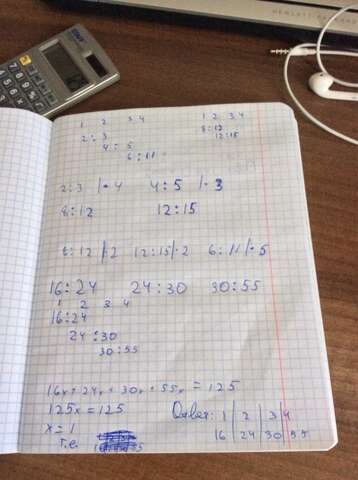 HEWLETT-PACKARD
1 2 3 4
2:3
4:5
6:11
1 2 3 4
8:12
12:15
2:3 |·4 4:5 |·3
8:12 12:15
8:12 |·2 12:15 |·2 6:11 |·5
16:24 24:30 30:55
1 2 3 4
16:24
24:30
30:55
16x+24x+30x+55x=125
125x=125
x=1
т.е.
Ответ: 1 | 2 | 3 | 4
16 | 24 | 30 | 55